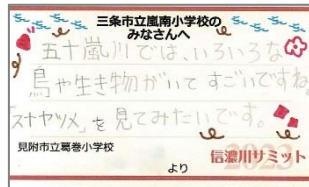 三条市立嵐南小学校の
みなさんへ
五十嵐川では、いろいろな
鳥や生き物がいてすごいですね。
「スナヤツメ」を見てみたいです。
見附市立葛巻小学校
より
信濃川サミット
2023